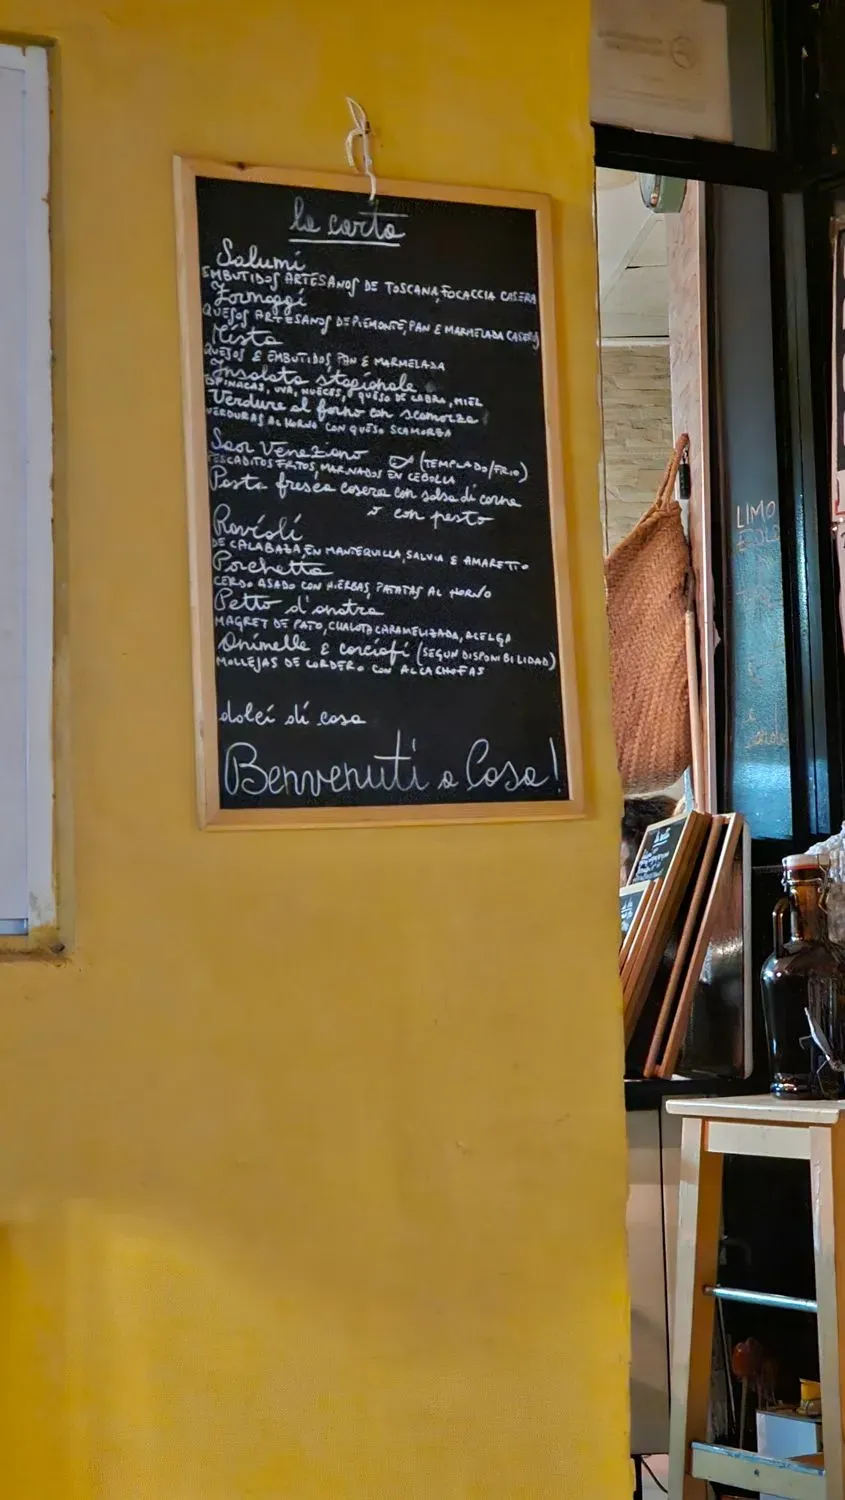 la carta
Salumi
EMBUTIDOS ARTESANOS DE TOSCANA, FOCACCIA CASERA
Formaggi
QUESOS ARTESANOS DE PIEMONTE, PAN E MARMELADA CASERA
Mista
QUESOS E EMBUTIDOS, PAN E MARMELADA
Insalata stagionale
ESPINACAS, UVA, NUECES, QUESO DE CABRA, MIEL
Verdure al forno con scamorza
VERDURAS AL HORNO CON QUESO SCAMORZA
Saor Veneziano (TEMPLADO/FRIO)
PESCADITOS FRITOS, MARINADOS EN CEBOLLA
Pasta fresca casera con salsa di carne
o con pesto
Ravioli
DE CALABAZA EN MANTEQUILLA, SALVIA E AMARETTO
Porchetta
CERDO ASADO CON HIERBAS, PATATAS AL HORNO
Petto d'anatra
MAGRET DE PATO, CHALOTA CARAMELIZADA, ACELGA
Animelle e carciofi (SEGUN DISPONIBILIDAD)
MOLLEJAS DE CORDERO CON ALCACHOFAS
dolci di casa
Benvenuti a Casa!
LIMO